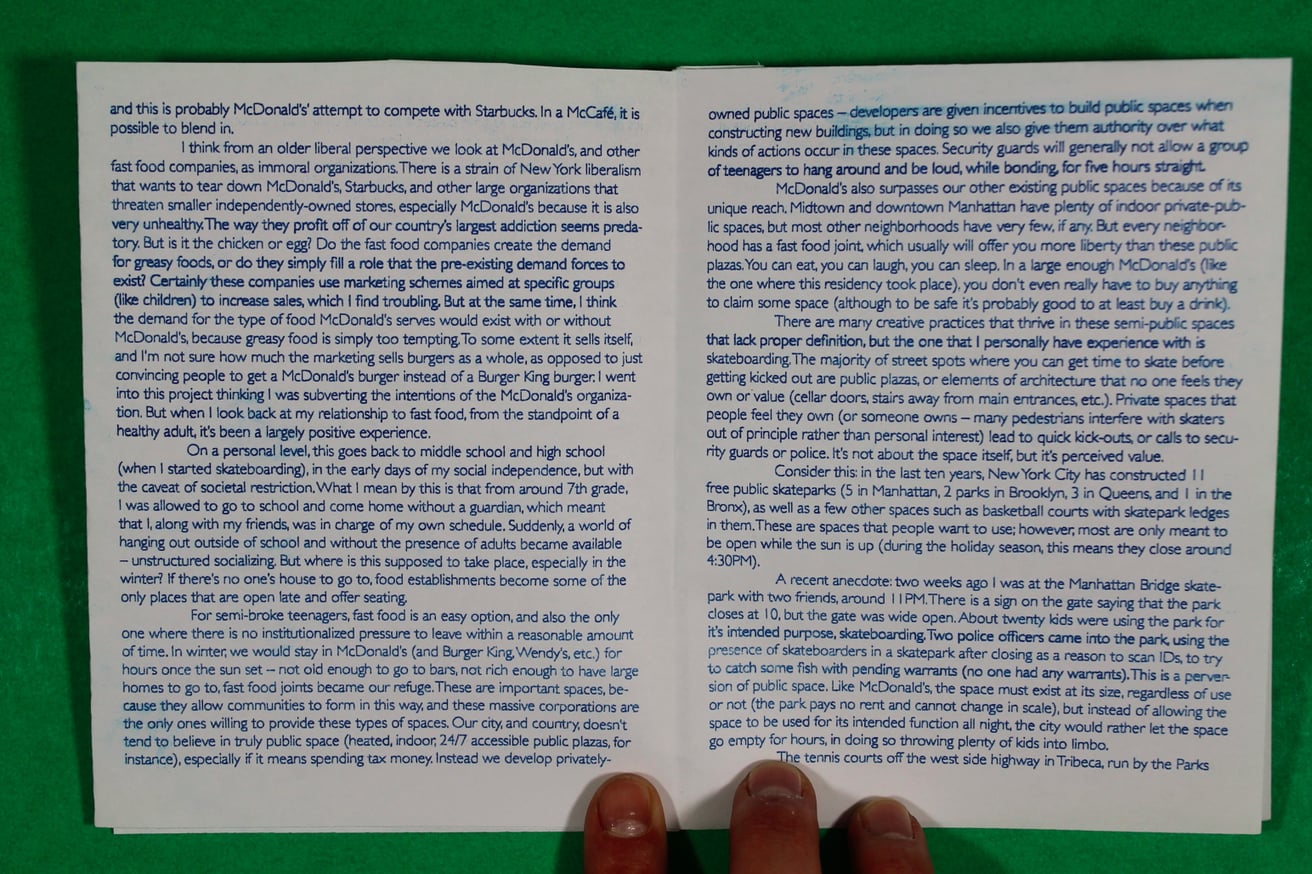 and this is probably McDonald's' attempt to compete with Starbucks. In a McCafé, it is
possible to blend in.
I think from an older liberal perspective we look at McDonald's, and other
fast food companies, as immoral organizations. There is a strain of New York liberalism
that wants to tear down McDonald's, Starbucks, and other large organizations that
threaten smaller independently-owned stores, especially McDonald's because it is also
very unhealthy. The way they profit off of our country's largest addiction seems preda-
tory. But is it the chicken or egg? Do the fast food companies create the demand
for greasy foods, or do they simply fill a role that the pre-existing demand forces to
exist? Certainly these companies use marketing schemes aimed at specific groups
(like children) to increase sales, which I find troubling. But at the same time, I think
the demand for the type of food McDonald's serves would exist with or without
McDonald's, because greasy food is simply too tempting. To some extent it sells itself,
and I'm not sure how much the marketing sells burgers as a whole, as opposed to just
convincing people to get a McDonald's burger instead of a Burger King burger. I went
into this project thinking I was subverting the intentions of the McDonald's organiza-
tion. But when I look back at my relationship to fast food, from the standpoint of a
healthy adult, it's been a largely positive experience.
On a personal level, this goes back to middle school and high school
(when I started skateboarding), in the early days of my social independence, but with
the caveat of societal restriction. What I mean by this is that from around 7th grade,
I was allowed to go to school and come home without a guardian, which meant
that I, along with my friends, was in charge of my own schedule. Suddenly, a world of
hanging out outside of school and without the presence of adults became available
– unstructured socializing. But where is this supposed to take place, especially in the
winter? If there's no one's house to go to, food establishments become some of the
only places that are open late and offer seating.
For semi-broke teenagers, fast food is an easy option, and also the only
one where there is no institutionalized pressure to leave within a reasonable amount
of time. In winter, we would stay in McDonald's (and Burger King, Wendy's, etc.) for
hours once the sun set – not old enough to go to bars, not rich enough to have large
homes to go to, fast food joints became our refuge. These are important spaces, be-
cause they allow communities to form in this way, and these massive corporations are
the only ones willing to provide these types of spaces. Our city, and country, doesn't
tend to believe in truly public space (heated, indoor, 24/7 accessible public plazas, for
instance), especially if it means spending tax money. Instead we develop privately-
owned public spaces – developers are given incentives to build public spaces when
constructing new buildings, but in doing so we also give them authority over what
kinds of actions occur in these spaces. Security guards will generally not allow a group
of teenagers to hang around and be loud, while bonding, for five hours straight.
McDonald's also surpasses our other existing public spaces because of its
unique reach. Midtown and downtown Manhattan have plenty of indoor private-pub-
lic spaces, but most other neighborhoods have very few, if any. But every neighbor-
hood has a fast food joint, which usually will offer you more liberty than these public
plazas. You can eat, you can laugh, you can sleep. In a large enough McDonald's (like
the one where this residency took place), you don't even really have to buy anything
to claim some space (although to be safe it's probably good to at least buy a drink).
There are many creative practices that thrive in these semi-public spaces
that lack proper definition, but the one that I personally have experience with is
skateboarding. The majority of street spots where you can get time to skate before
getting kicked out are public plazas, or elements of architecture that no one feels they
own or value (cellar doors, stairs away from main entrances, etc.). Private spaces that
people feel they own (or someone owns – many pedestrians interfere with skaters
out of principle rather than personal interest) lead to quick kick-outs, or calls to secu-
rity guards or police. It's not about the space itself, but it's perceived value.
Consider this: in the last ten years, New York City has constructed 11
free public skateparks (5 in Manhattan, 2 parks in Brooklyn, 3 in Queens, and 1 in the
Bronx), as well as a few other spaces such as basketball courts with skatepark ledges
in them. These are spaces that people want to use; however, most are only meant to
be open while the sun is up (during the holiday season, this means they close around
4:30PM).
A recent anecdote: two weeks ago I was at the Manhattan Bridge skate-
park with two friends, around 11PM. There is a sign on the gate saying that the park
closes at 10, but the gate was wide open. About twenty kids were using the park for
it's intended purpose, skateboarding. Two police officers came into the park, using the
presence of skateboarders in a skatepark after closing as a reason to scan IDs, to try
to catch some fish with pending warrants (no one had any warrants). This is a perver-
sion of public space. Like McDonald's, the space must exist at its size, regardless of use
or not (the park pays no rent and cannot change in scale), but instead of allowing the
space to be used for its intended function all night, the city would rather let the space
go empty for hours, in doing so throwing plenty of kids into limbo.
The tennis courts off the west side highway in Tribeca, run by the Parks